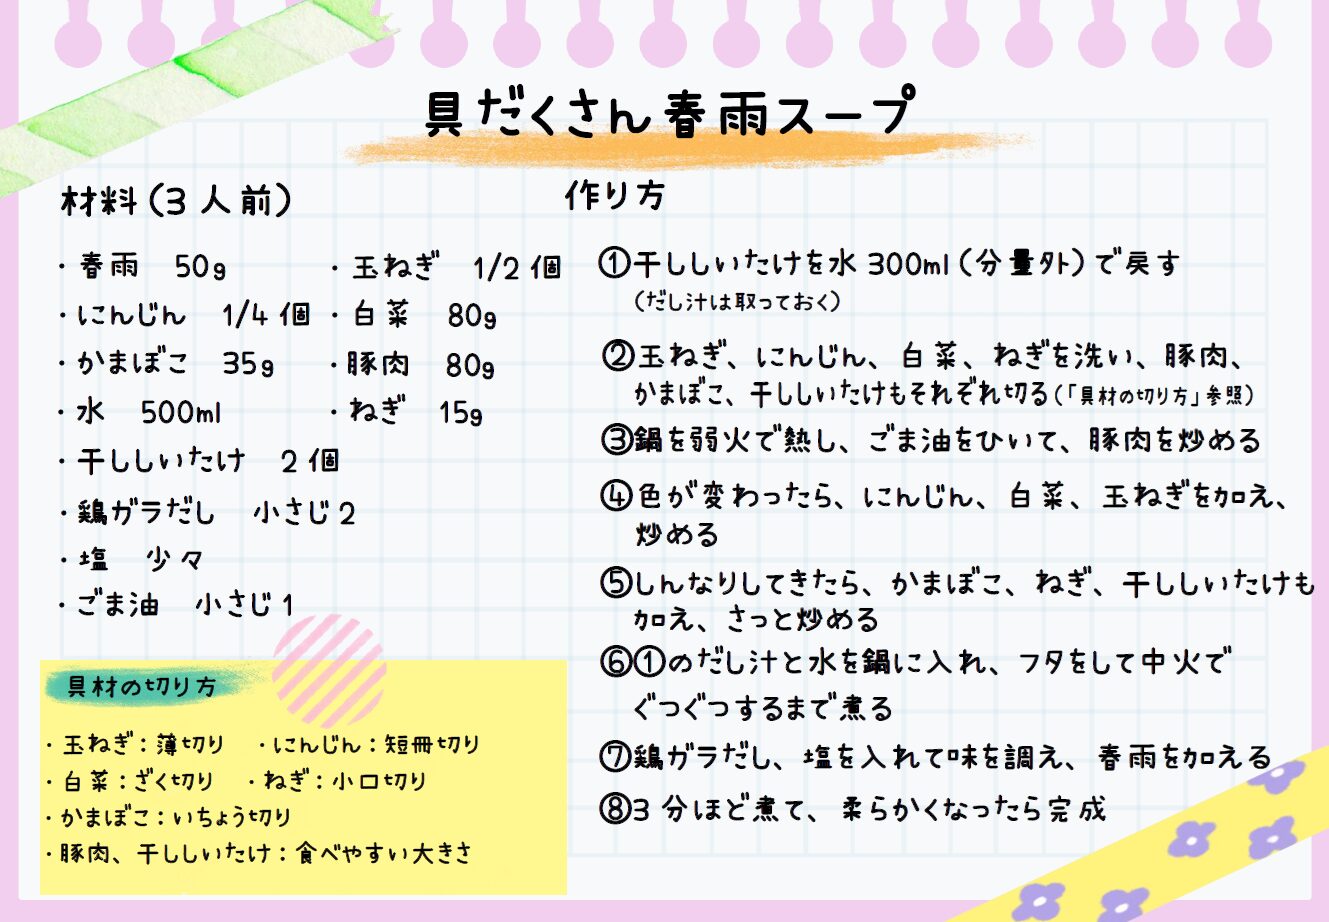 具だくさん春雨スープ
材料(3人前)
・春雨 50g
・にんじん 1/4個
・かまぼこ 35g
・水 500ml
・干ししいたけ 2個
・鶏ガラだし 小さじ2
・塩 少々
・ごま油 小さじ1
・玉ねぎ 1/2個
・白菜 80g
・豚肉 80g
・ねぎ 15g
具材の切り方
・玉ねぎ:薄切り ・にんじん:短冊切り
・白菜:ざく切り ・ねぎ:小口切り
・かまぼこ:いちょう切り
・豚肉、干ししいたけ:食べやすい大きさ
作り方
①干ししいたけを水300ml(分量外)で戻す
(だし汁は取っておく)
②玉ねぎ、にんじん、白菜、ねぎを洗い、豚肉、
かまぼこ、干ししいたけもそれぞれ切る(「具材の切り方」参照)
③鍋を弱火で熱し、ごま油をひいて、豚肉を炒める
④色が変わったら、にんじん、白菜、玉ねぎを加え、
炒める
⑤しんなりしてきたら、かまぼこ、ねぎ、干ししいたけも
加え、さっと炒める
⑥①のだし汁と水を鍋に入れ、フタをして中火で
ぐつぐつするまで煮る
⑦鶏ガラだし、塩を入れて味を調え、春雨を加える
⑧3分ほど煮て、柔らかくなったら完成